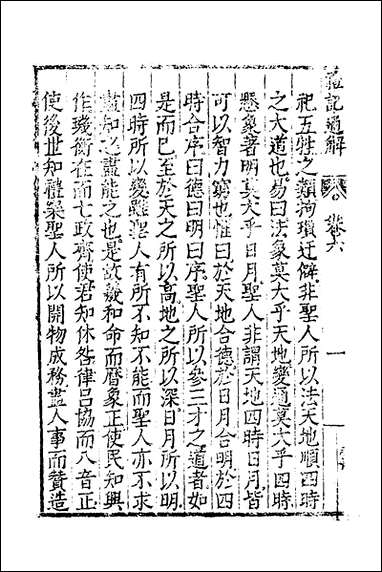 禮記通解 卷六 一
祀五牲之類拘瑣迂僻非聖人所以法天地順四時
之大道也易曰法象莫大乎天地變通莫大乎四時
懸象著明莫大乎日月聖人非謂天地四時日月皆
可以智力窮也惟曰於天地合德於日月合明於四
時合序曰德曰明曰序聖人所以參三才之道者如
是而已至於天之所以高地之所以深日月所以明
四時所以變雖聖人有所不知不能而聖人亦不求
盡知之盡能之也是故羲和命而曆象正使民知興
作璣衡在而七政齊使君知休咎律呂協而八音正
使後世知禮樂聖人所以開物成務盡人事而贊造